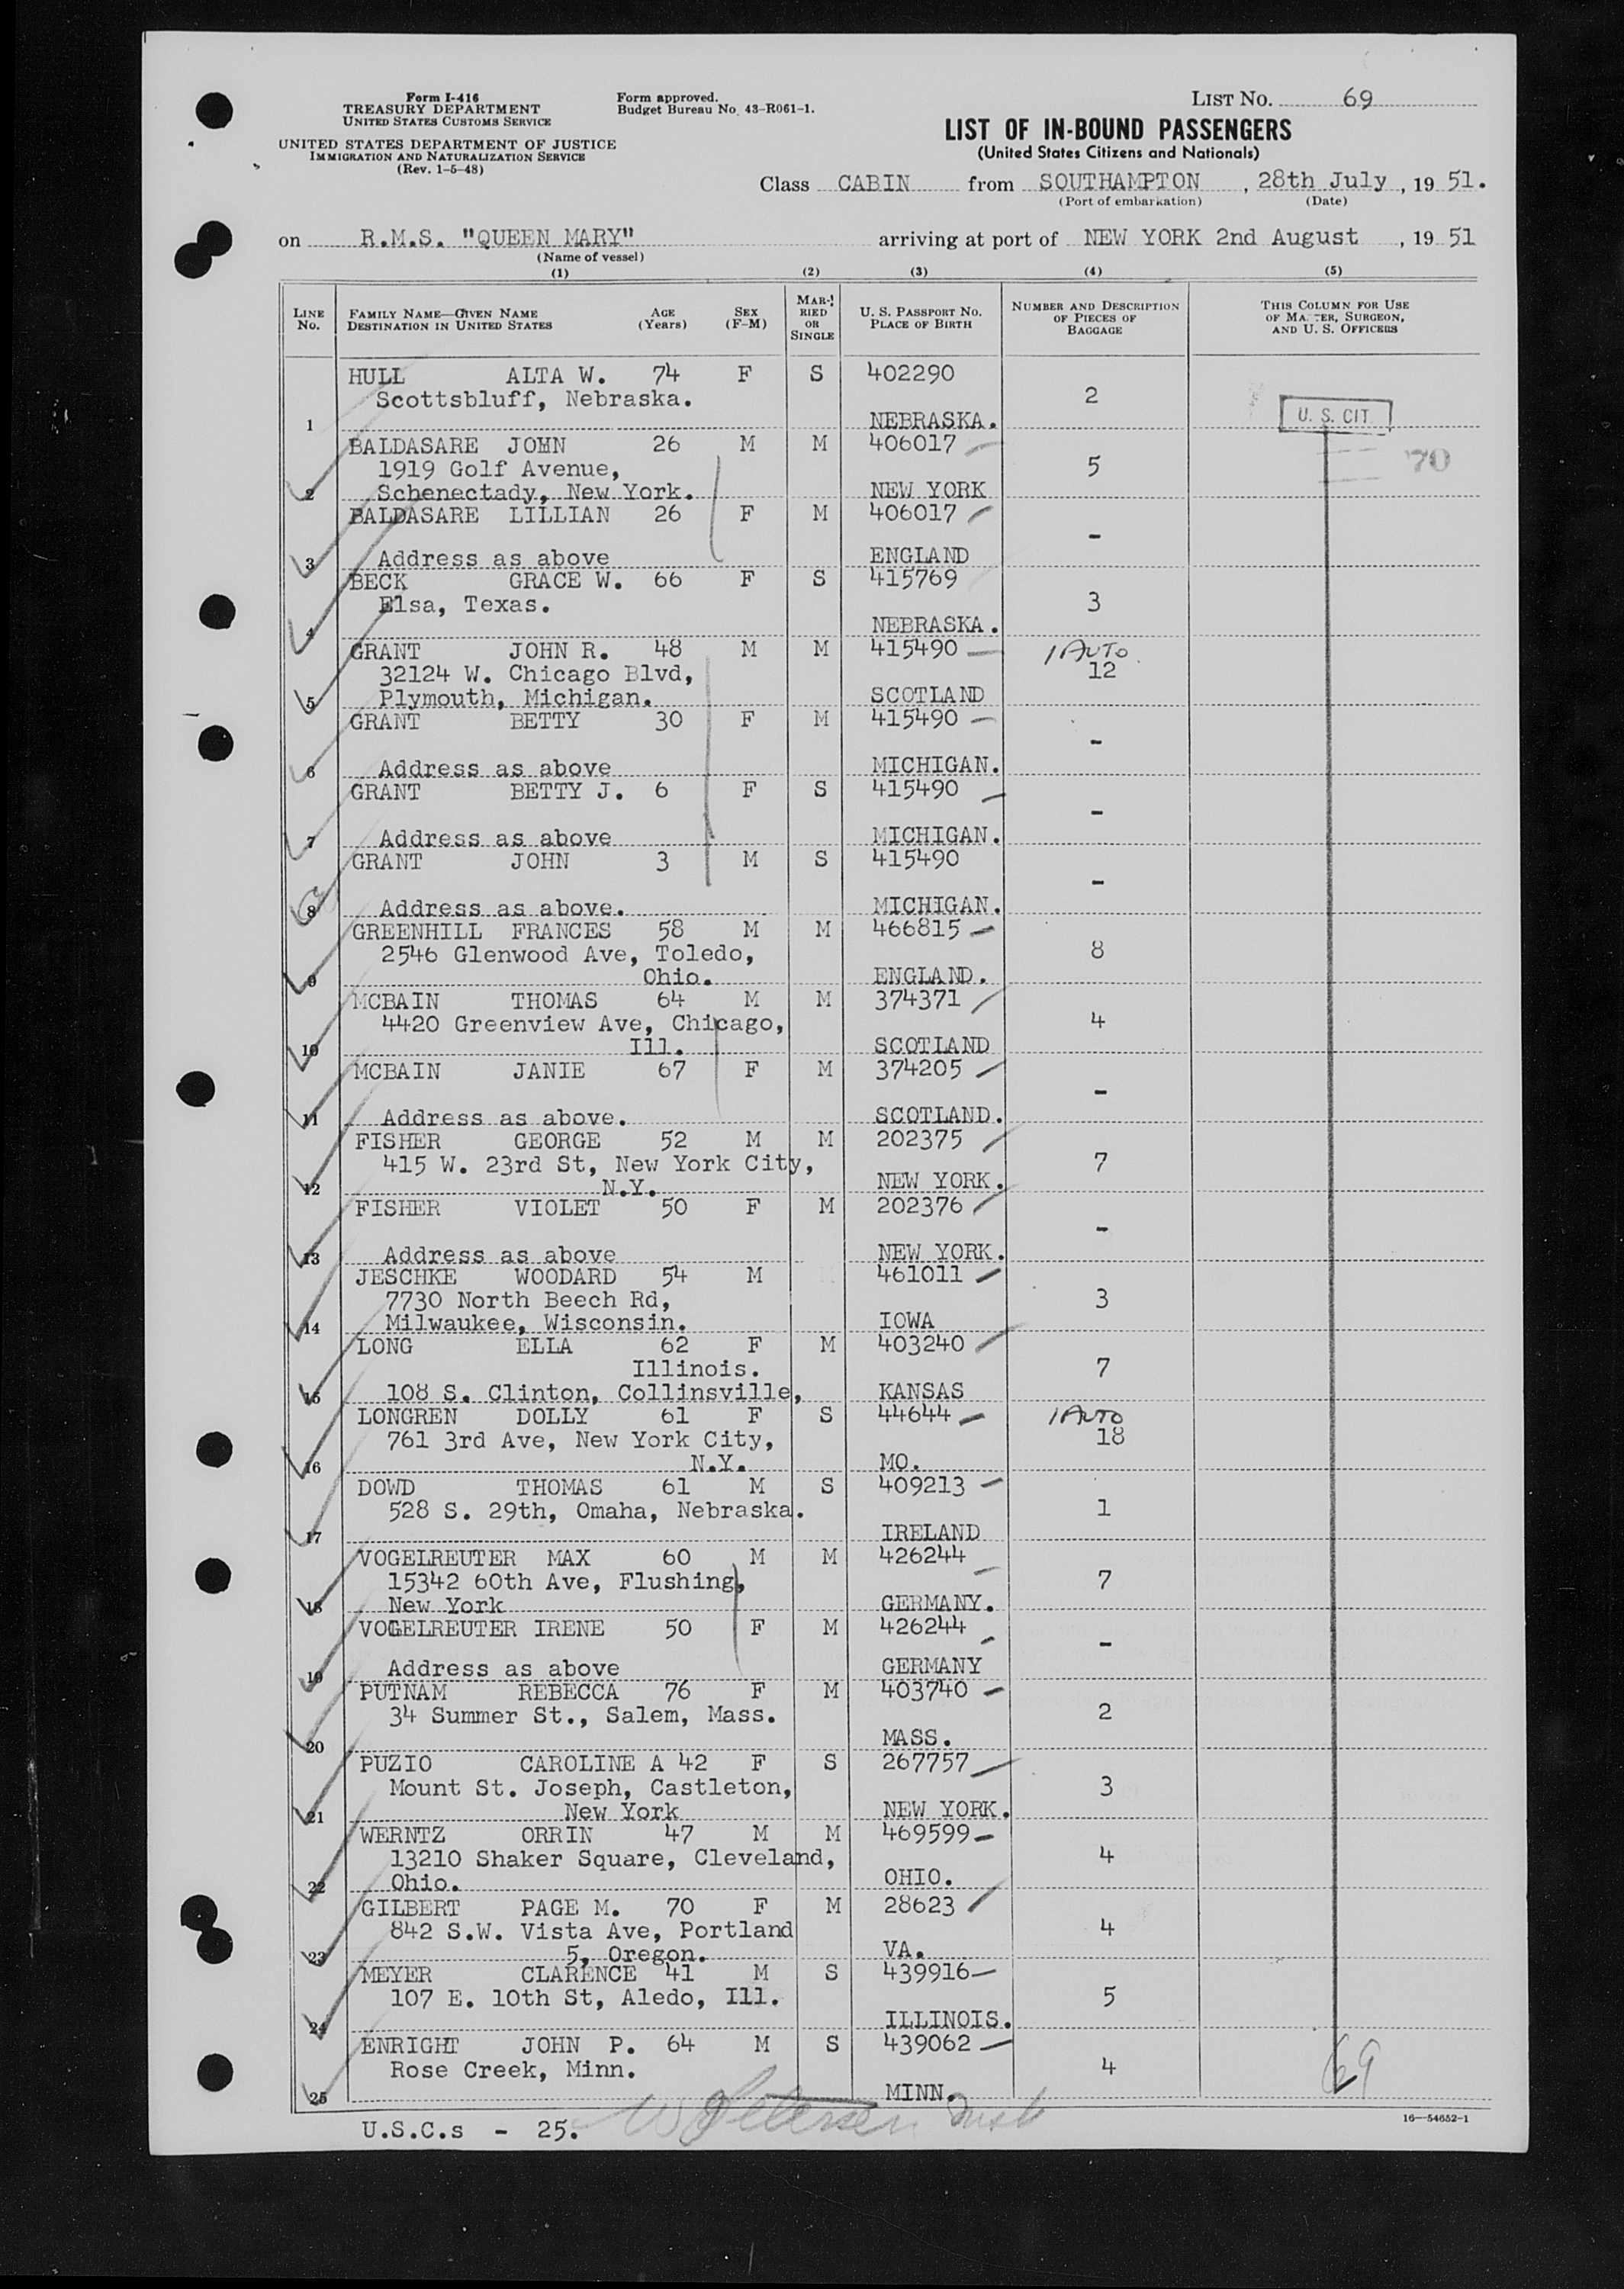 Form I-416
TREASURY DEPARTMENT
UNITED STATES CUSTOMS SERVICE
UNITED STATES DEPARTMENT OF JUSTICE
IMMIGRATION AND NATURALIZATION SERVICE
(Rev. 1-5-48)
Form approved.
Budget Bureau No. 43-R061-1.
LIST NO. 69
LIST OF IN-BOUND PASSENGERS
(United States Citizens and Nationals)
Class CABIN from SOUTHAMPTON, 28th July, 19 51.
(Port of embarkation) (Date)
on R.M.S. "QUEEN MARY" arriving at port of NEW YORK 2nd August, 19 51
(Name of vessel)
(1) (2) (3) (4) (5)
LINE No. FAMILY NAME—GIVEN NAME DESTINATION IN UNITED STATES AGE (Years) SEX (F-M) MARRIED OR SINGLE U. S. PASSPORT No. PLACE OF BIRTH NUMBER AND DESCRIPTION OF PIECES OF BAGGAGE THIS COLUMN FOR USE OF MASTER, SURGEON, AND U. S. OFFICERS
HULL ALTA W. 74 F S 402290
Scottsbluff, Nebraska. 2
1 NEBRASKA. U. S. CIT
BALDASARE JOHN 26 M M 406017
1919 Golf Avenue, 5 70
2 Schenectady, New York. NEW YORK
BALDASARE LILLIAN 26 F M 406017
-
3 Address as above ENGLAND
BECK GRACE W. 66 F S 415769
Elsa, Texas. 3
4 NEBRASKA.
GRANT JOHN R. 48 M M 415490 1 AUTO
32124 W. Chicago Blvd, 12
5 Plymouth, Michigan. SCOTLAND
GRANT BETTY 30 F M 415490
-
6 Address as above MICHIGAN.
GRANT BETTY J. 6 F S 415490
-
7 Address as above MICHIGAN.
GRANT JOHN 3 M S 415490
-
8 Address as above. MICHIGAN.
GREENHILL FRANCES 58 M M 466815
2546 Glenwood Ave, Toledo, 8
9 Ohio. ENGLAND.
MCBAIN THOMAS 64 M M 374371
4420 Greenview Ave, Chicago, 4
10 Ill. SCOTLAND
MCBAIN JANIE 67 F M 374205
-
11 Address as above. SCOTLAND.
FISHER GEORGE 52 M M 202375
415 W. 23rd St, New York City, 7
12 N.Y. NEW YORK.
FISHER VIOLET 50 F M 202376
-
13 Address as above NEW YORK.
JESCHKE WOODARD 54 M 461011
7730 North Beech Rd, 3
14 Milwaukee, Wisconsin. IOWA
LONG ELLA 62 F M 403240
Illinois. 7
15 108 S. Clinton, Collinsville, KANSAS
LONGREN DOLLY 61 F S 44644 1 AUTO
761 3rd Ave, New York City, 18
16 N.Y. MO.
DOWD THOMAS 61 M S 409213
528 S. 29th, Omaha, Nebraska. 1
17 IRELAND
VOGELREUTER MAX 60 M M 426244
15342 60th Ave, Flushing, 7
18 New York GERMANY.
VOGELREUTER IRENE 50 F M 426244
-
19 Address as above GERMANY
PUTNAM REBECCA 76 F M 403740
34 Summer St., Salem, Mass. 2
20 MASS.
PUZIO CAROLINE A 42 F S 267757
Mount St. Joseph, Castleton, 3
21 New York NEW YORK.
WERNTZ ORRIN 47 M M 469599
13210 Shaker Square, Cleveland, 4
22 Ohio. OHIO.
GILBERT PAGE M. 70 F M 28623
842 S.W. Vista Ave, Portland 4
23 5, Oregon. VA.
MEYER CLARENCE 41 M S 439916
107 E. 10th St, Aledo, Ill. 5
24 ILLINOIS.
ENRIGHT JOHN P. 64 M S 439062
Rose Creek, Minn. 4 69
25 MINN.
U.S.C.s - 25.
16—54652-1